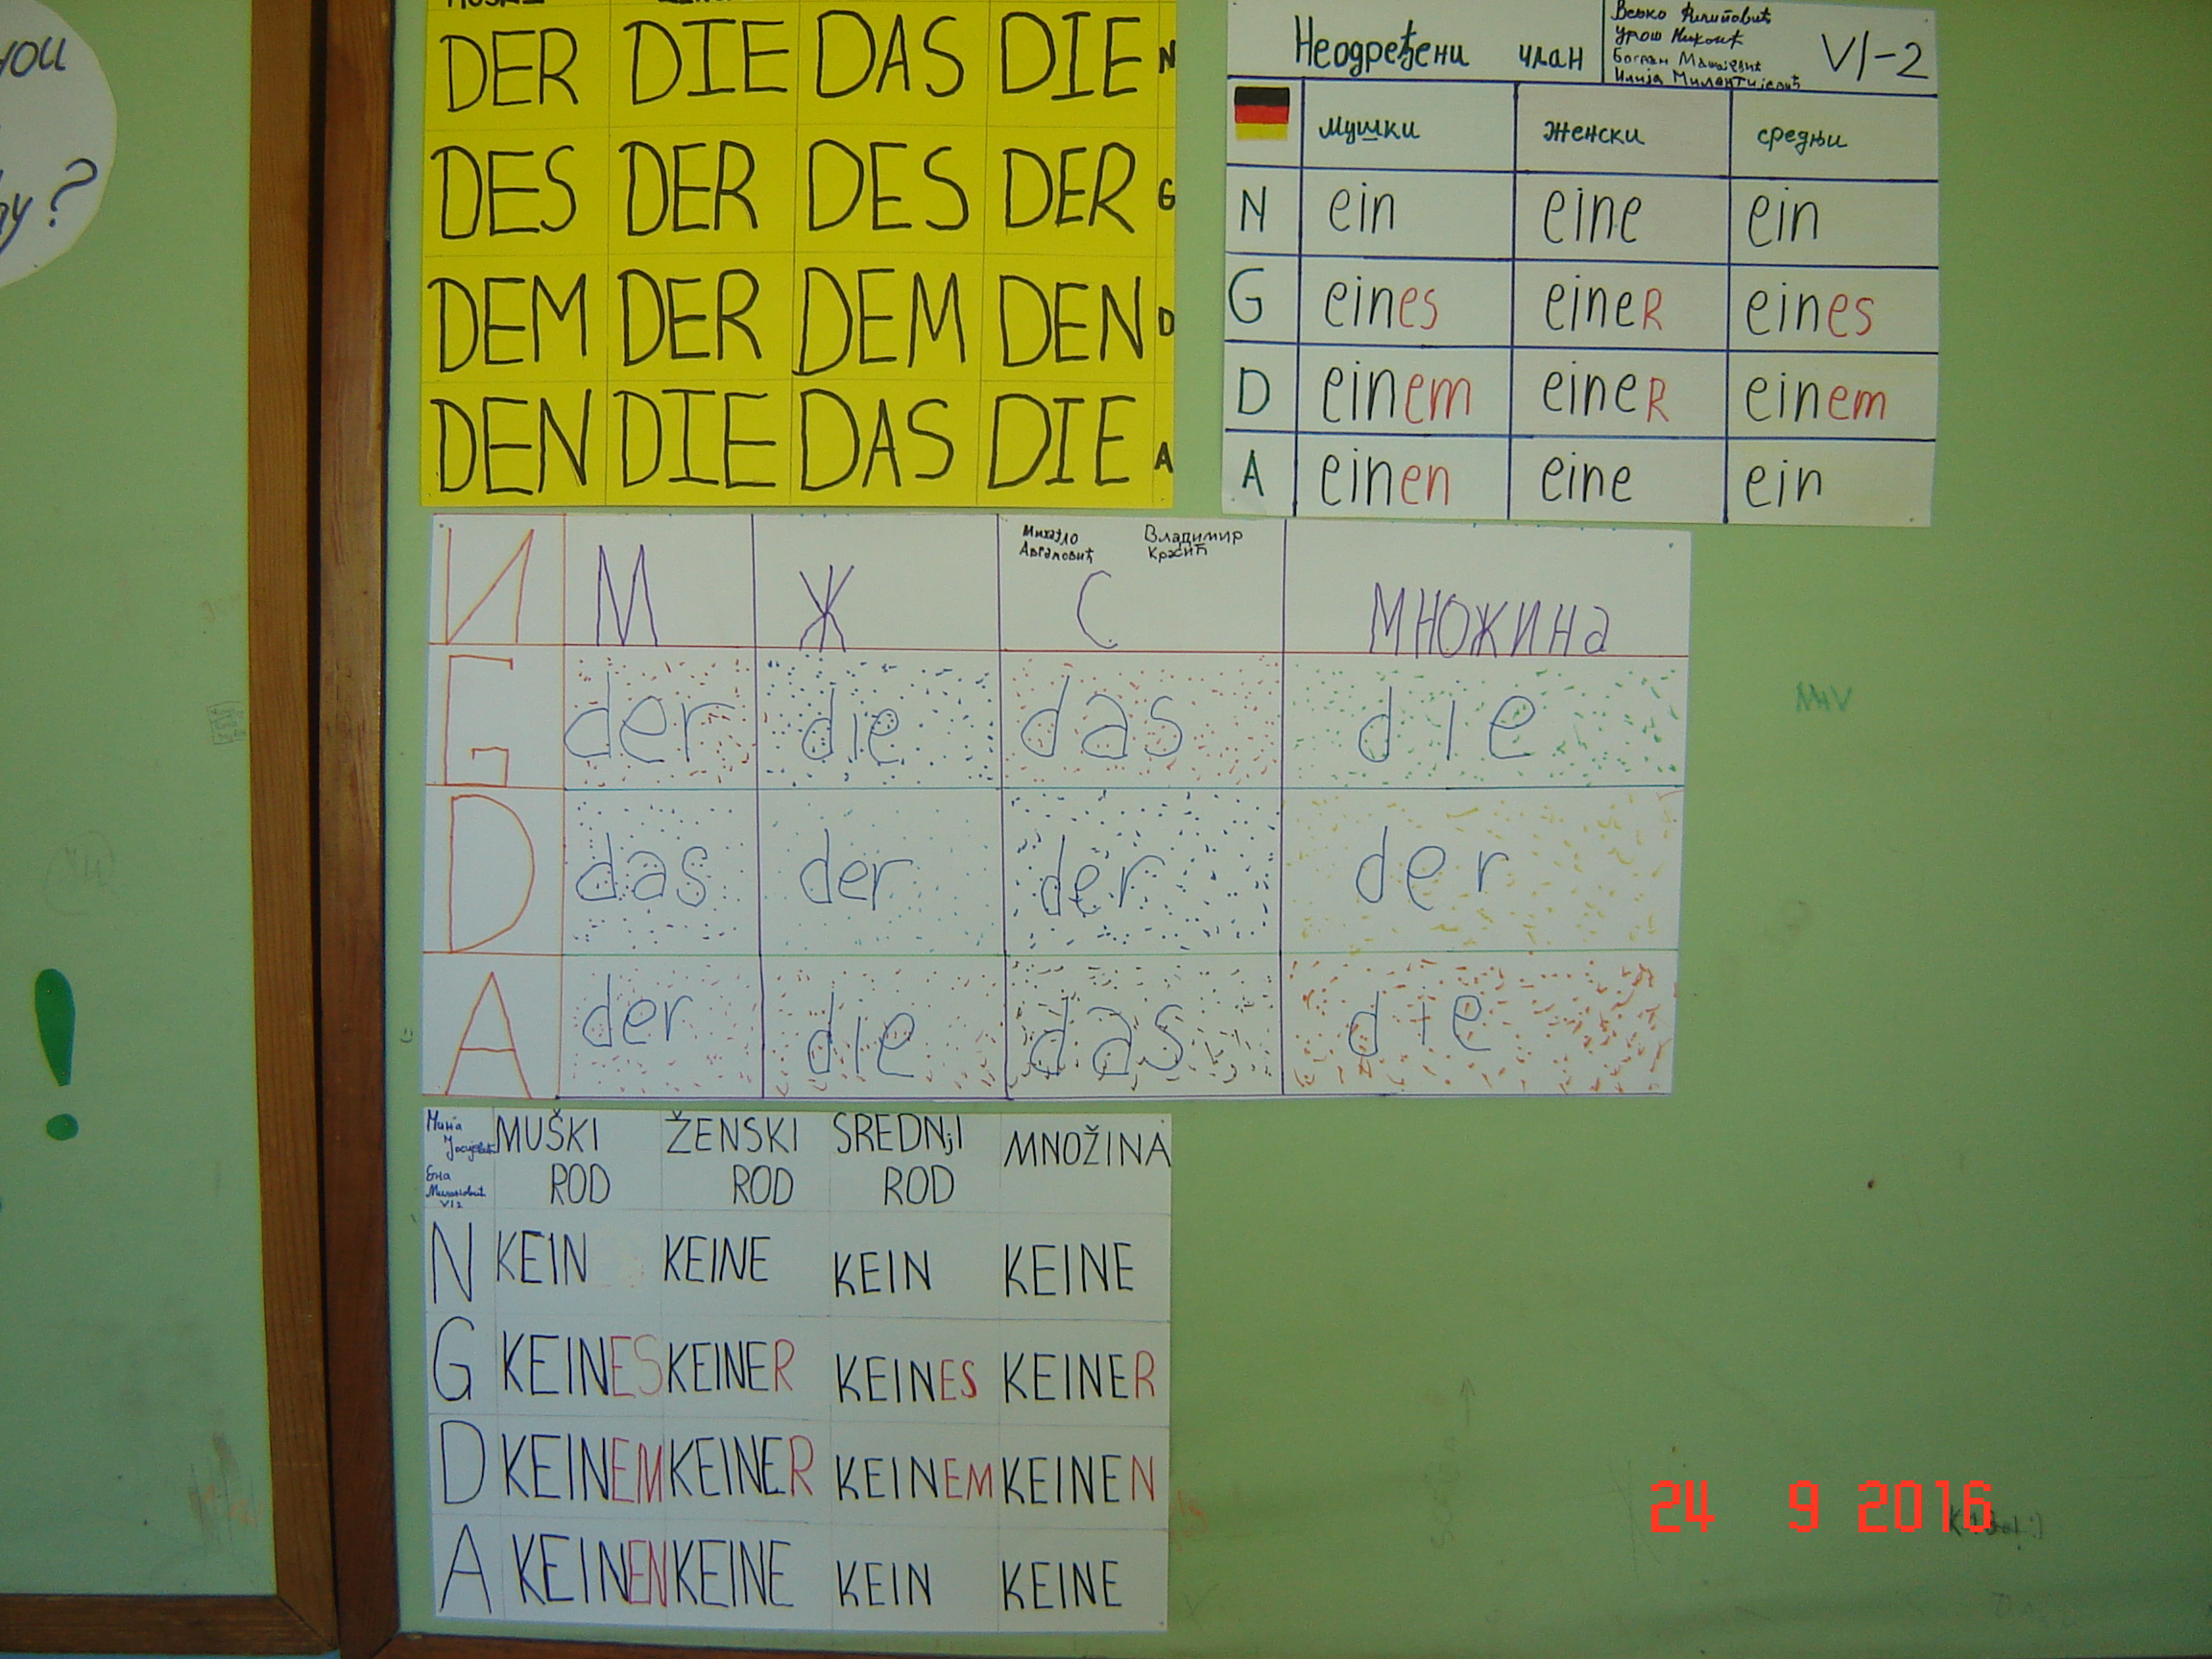 you
?
DER DIE DAS DIE N
DES DER DES DER G
DEM DER DEM DEN D
DEN DIE DAS DIE A
Неодређени члан
Вељко Филиповић
Урош
Богдан
Илија Милантијевић
VI-2
мушки женски средњи
N ein eine ein
G eines eineR eines
D einem eineR einem
A einen eine ein
Михајло Владимир
Аврамовић Красић
И М Ж С МНОЖИНа
G der die das die
D das der der der
A der die das die
Мина
Ена
VI2
MUŠKI ŽENSKI SREDNjI MNOŽINA
ROD ROD ROD
N KEIN KEINE KEIN KEINE
G KEINES KEINER KEINES KEINER
D KEINEM KEINER KEINEM KEINEN
A KEINEN KEINE KEIN KEINE
!
24 9 2016